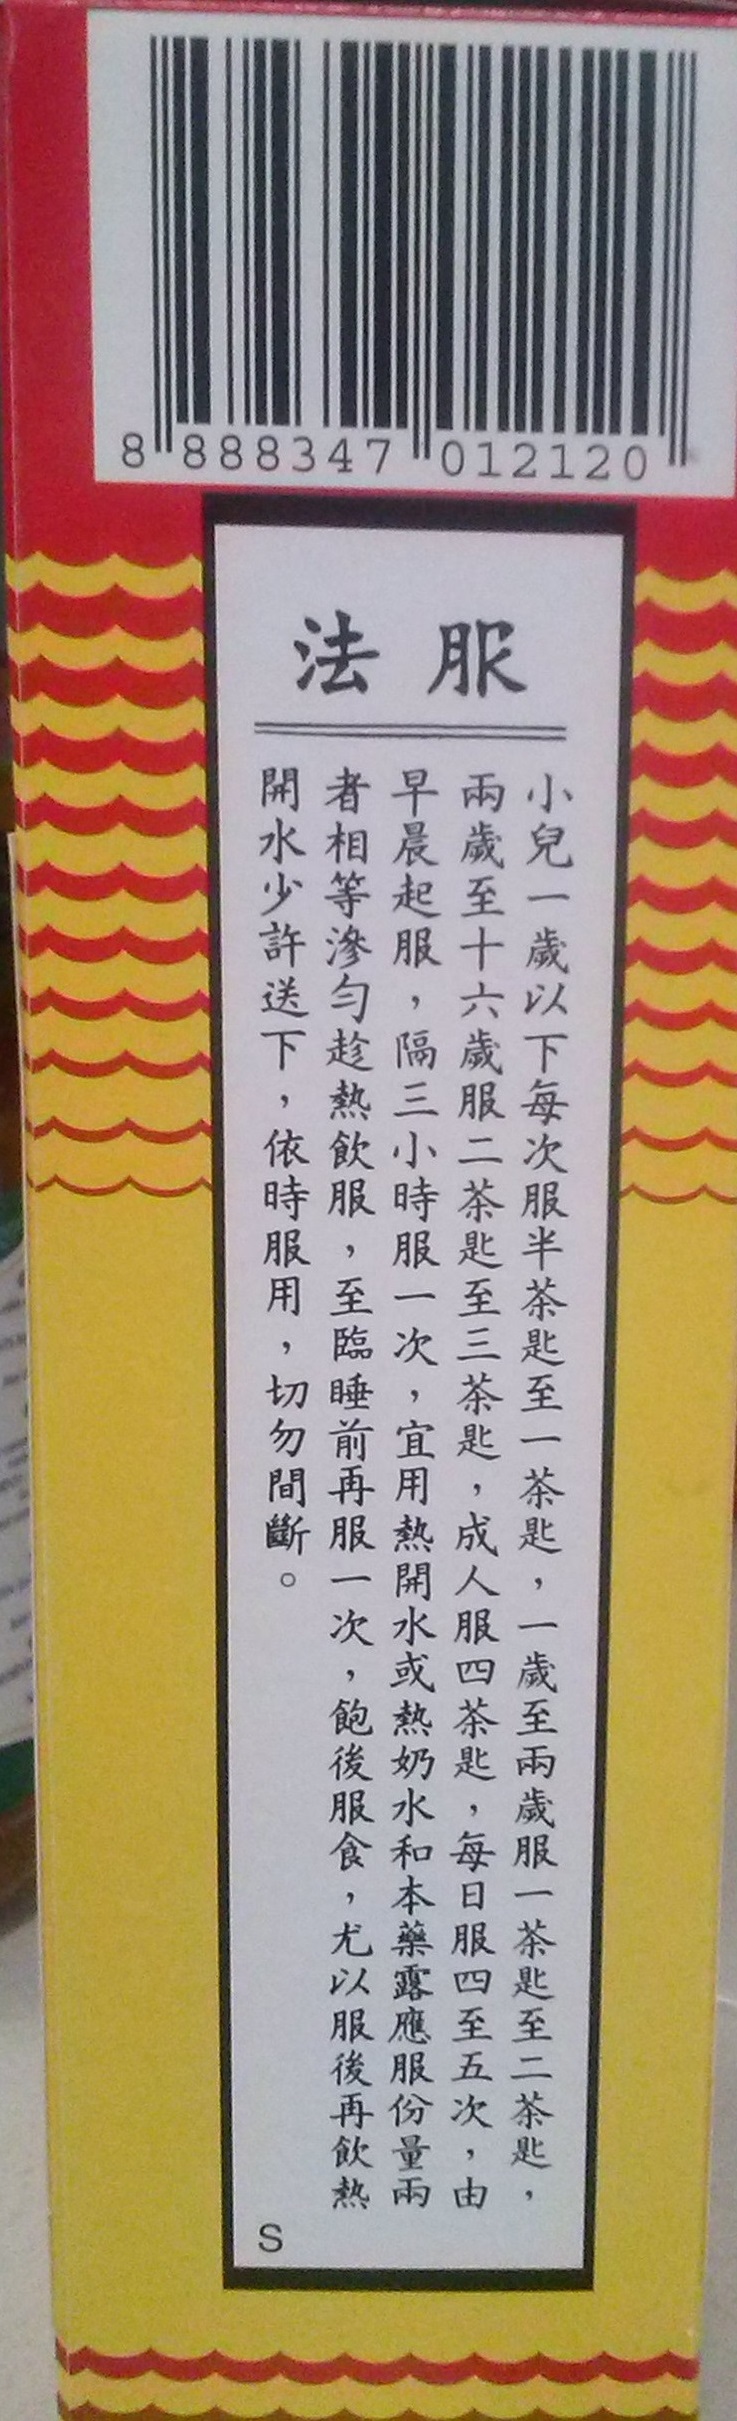 8 888347 012120
服法
小兒一歲以下每次服半茶匙至一茶匙，一歲至兩歲服一茶匙至二茶匙，
兩歲至十六歲服二茶匙至三茶匙，成人服四茶匙，每日服四至五次，由
早晨起服，隔三小時服一次，宜用熱開水或熱奶水和本藥露應服份量兩
者相等滲勻趁熱飲服，至臨睡前再服一次，飽後服食，尤以服後再飲熱
開水少許送下，依時服用，切勿間斷。
S